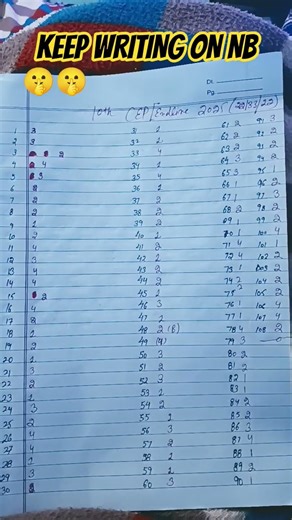 KEEP WRITING ON NB
🤫🤫
Dt.
Pg.
10th CEP Endline 2025
1 2 31 2 61 2 91 3
2 3 32 1 62 2 92 2
3 2 33 4 63 2 93 2
4 4 34 1 64 3 94 2
5 3 35 4 65 3 95 1
6 2 36 1 66 1 96 2
7 2 37 2 67 1 97 3
8 2 38 2 68 2 98 2
9 1 39 2 69 1 99 2
10 2 40 1 70 1 100 4
11 4 41 2 71 4 101 1
12 3 42 1 72 4 102 2
13 4 43 2 73 1 103 2
14 4 44 2 74 2 104 2
15 2 45 1 75 2 105 2
16 4 46 3 76 1 106 4
17 2 47 2 77 1 107 4
18 1 48 2 (B) 78 4 108 2
19 2 49 79 3
20 1 50 3 80 2
21 3 51 2 81 2
22 2 52 3 82 1
23 1 53 1 83 1
24 3 54 2 84 2
25 2 55 1 85 2
26 4 56 3 86 3
27 4 57 2 87 4
28 2 58 2 88 1
29 3 59 1 89 2
30 60 3 90 1